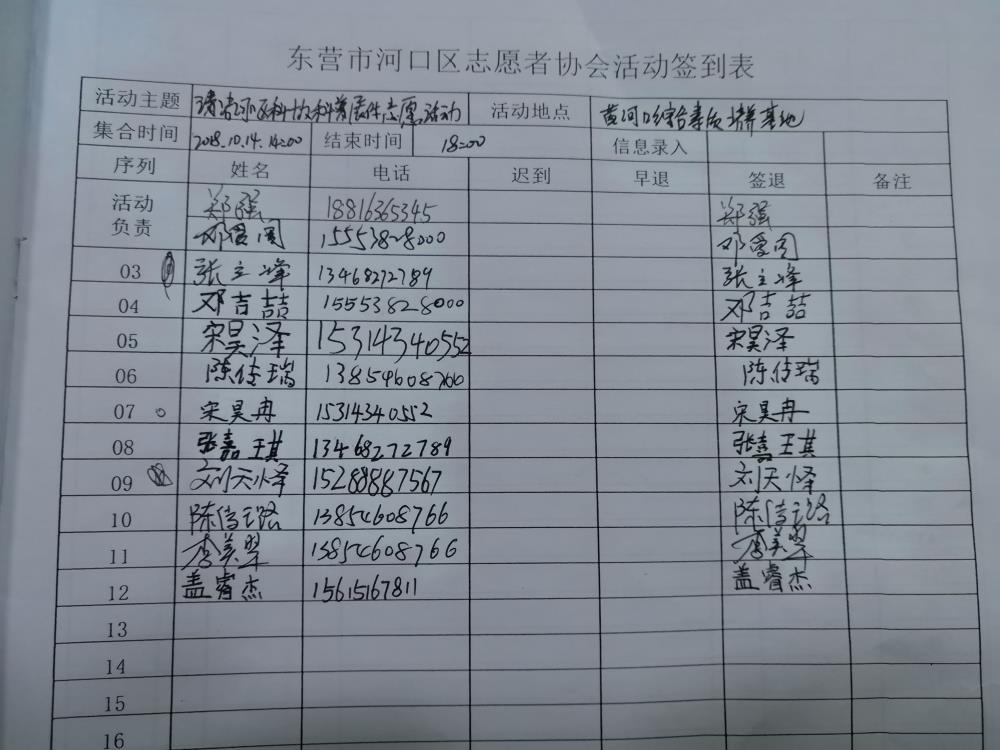 东营市河口区志愿者协会活动签到表
活动主题 科协科普展件志愿活动 活动地点 黄河口综合素质培养基地
集合时间 2018.10.14. 14:00 结束时间 18:00 信息录入
序列 姓名 电话 迟到 早退 签退 备注
活动负责 郑强 18816365345 郑强
邓爱国 15553828000 邓爱国
03 张立峰 13468272789 张立峰
04 邓吉喆 15553828000 邓吉喆
05 宋昊泽 15314340552 宋昊泽
06 陈传瑞 13854608766 陈传瑞
07 宋昊冉 15314340552 宋昊冉
08 张嘉琪 13468272789 张嘉琪
09 刘天怿 15288887567 刘天怿
10 陈传璐 13854608766 陈传璐
11 李美翠 13854608766 李美翠
12 盖睿杰 15615167811 盖睿杰
13
14
15
16